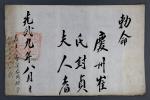 勅命
慶州崔
氏封貞
夫人者
光武九年八月 日